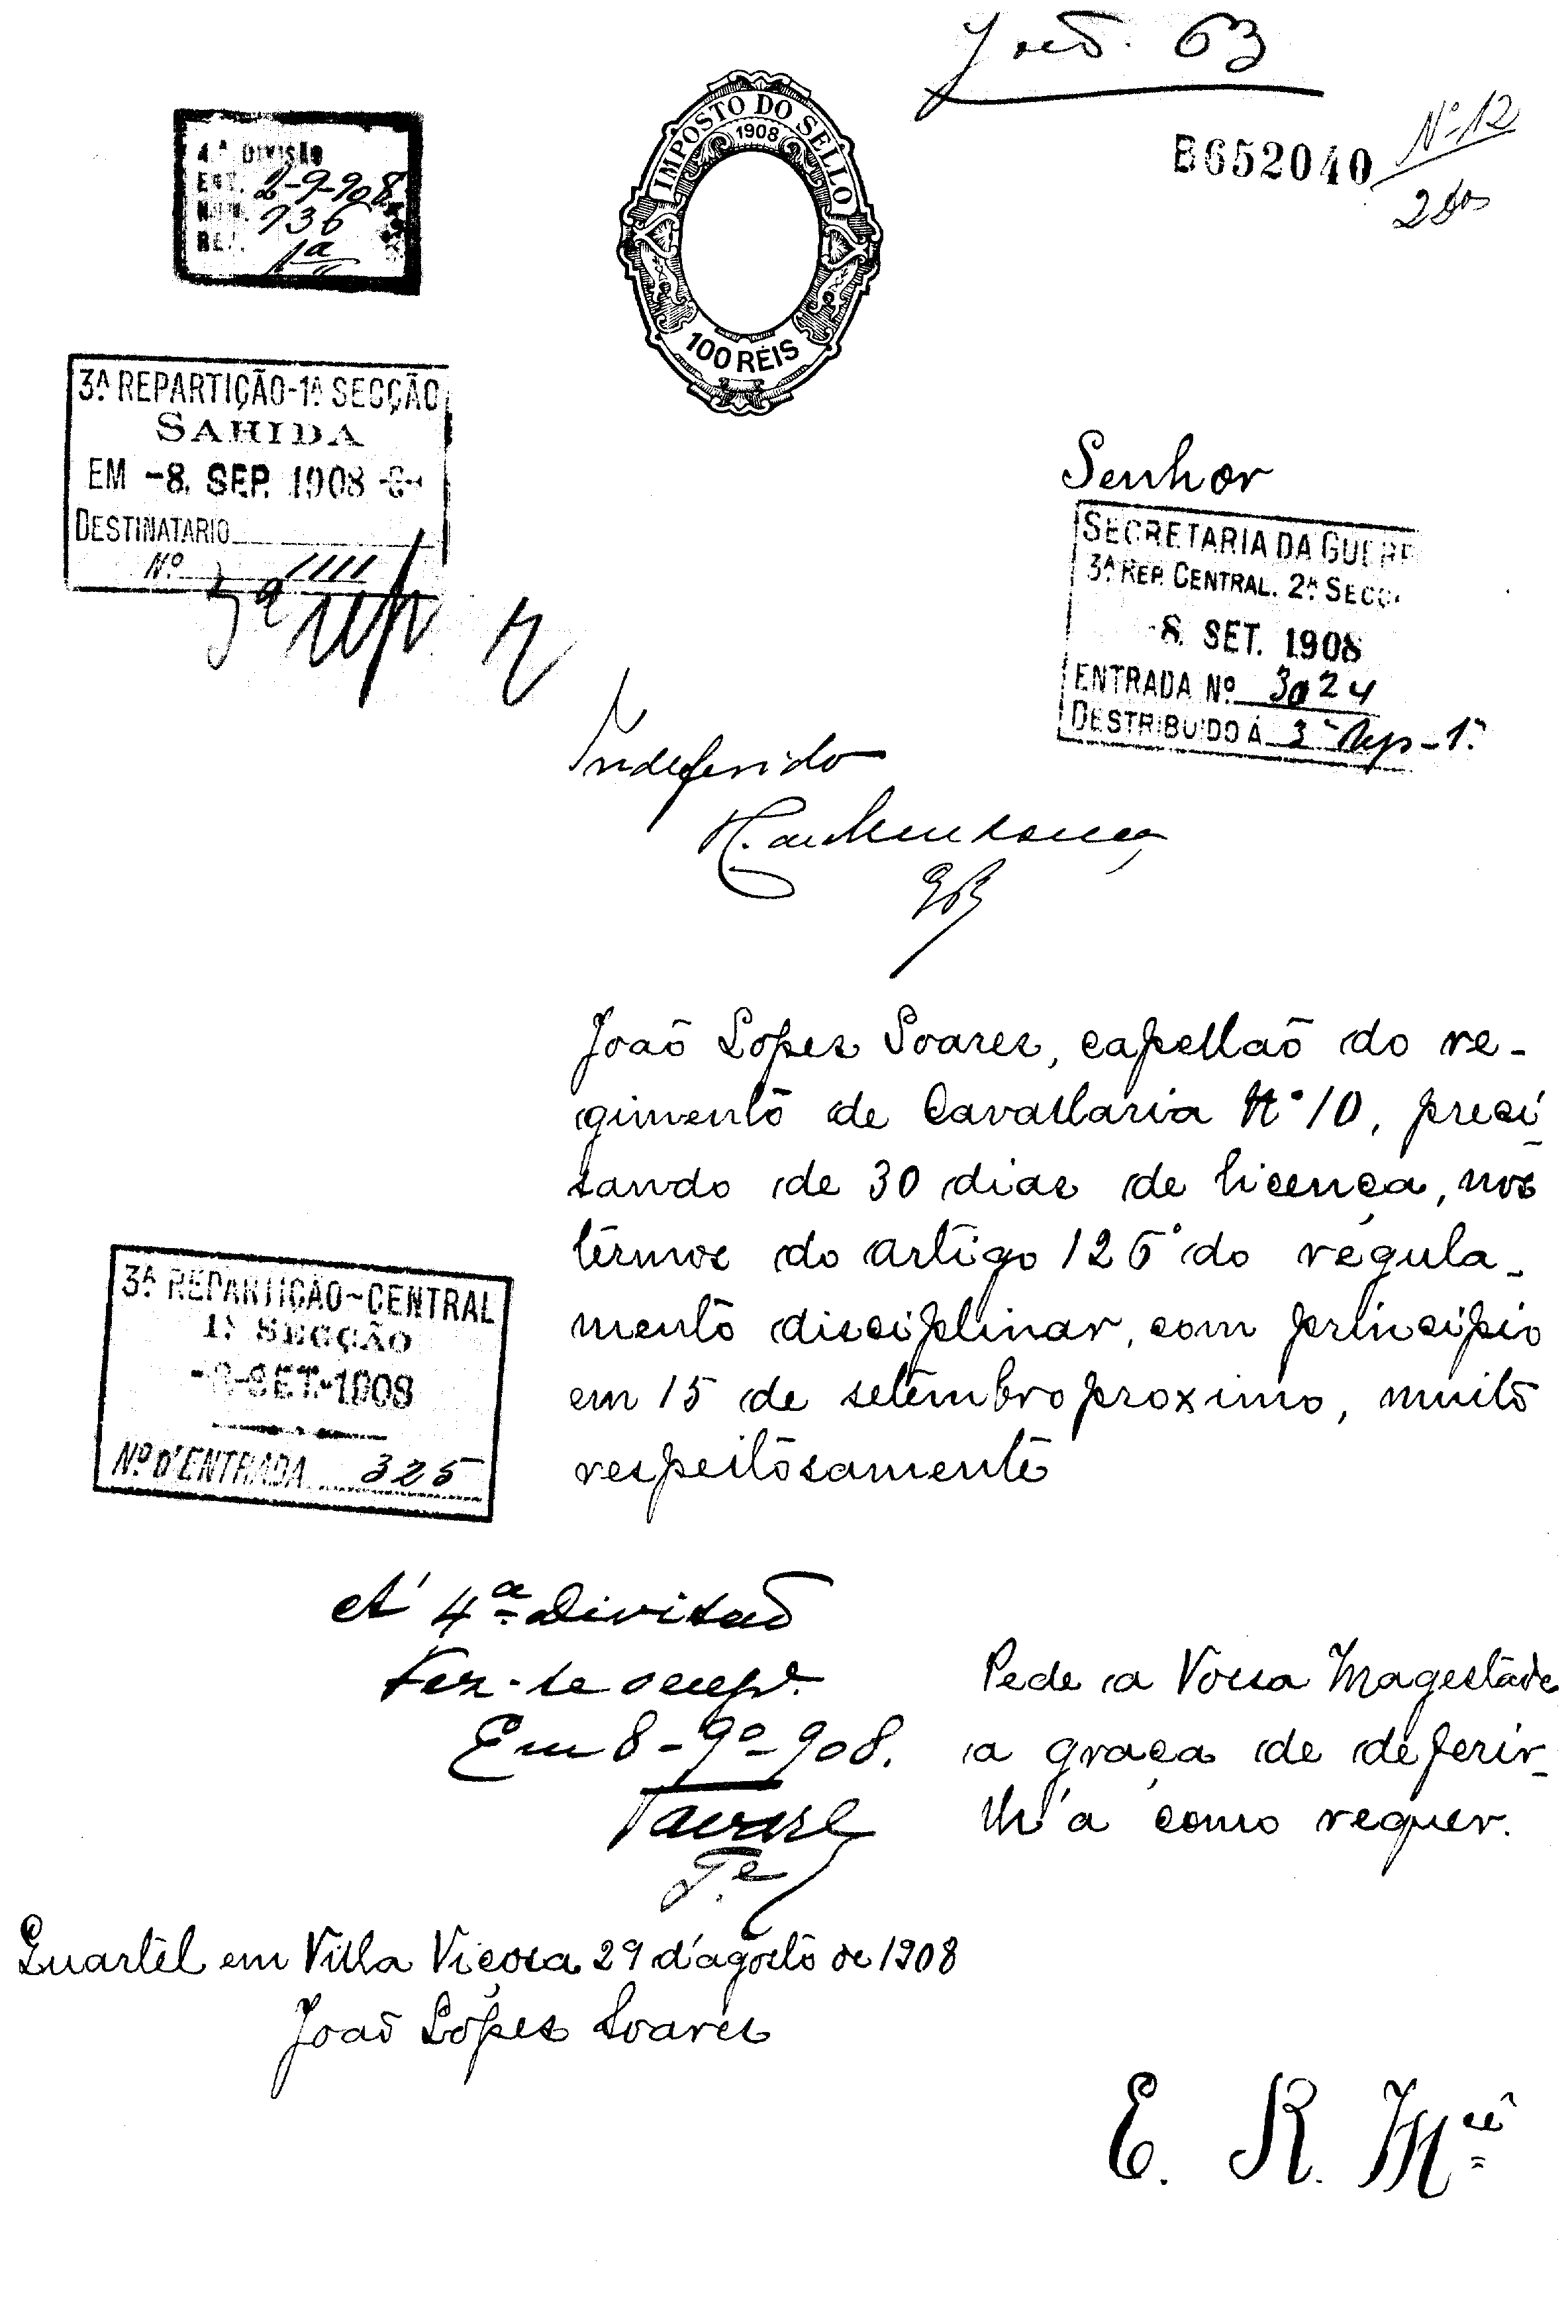 63
Nº 12
B652040
IMPOSTO DO SELLO
1908
100 RÉIS
4.ª DIVISÃO
ENT. 2-9-908
NUM. 936
REP. 1ª
3ª REPARTIÇÃO-1ª SECÇÃO
SAHIDA
EM -8. SEP. 1908
DESTINATARIO
Nº 1111
3ª rep
Senhor
SECRETARIA DA GUERR
3ª REP. CENTRAL. 2ª SECÇ
-8. SET. 1908
ENTRADA Nº 3024
DESTRIBUIDO Á 3ª Rep-1ª
Indeferido
João Lopes Soares, capellaõ do re-
gimento de Cavallaria Nº 10, preci-
sando de 30 dias de licença, nos
termos do artigo 126º do regula-
mento disciplinar, com principio
em 15 de setembro proximo, muito
respeitosamente
3ª REPARTIÇÃO-CENTRAL
1ª SECÇÃO
-8-SET.-1908
Nº D'ENTRADA 325
Á 4ª Divisaõ
Fez-se
Em 8-9º-908.
Tavares
T.e
Pede a Vossa Magestade
a graça de deferir-
lh'a como requer.
Quartel em Villa Viçosa 29 d'agosto de 1908
João Lopes Soares
E. R. Mcê